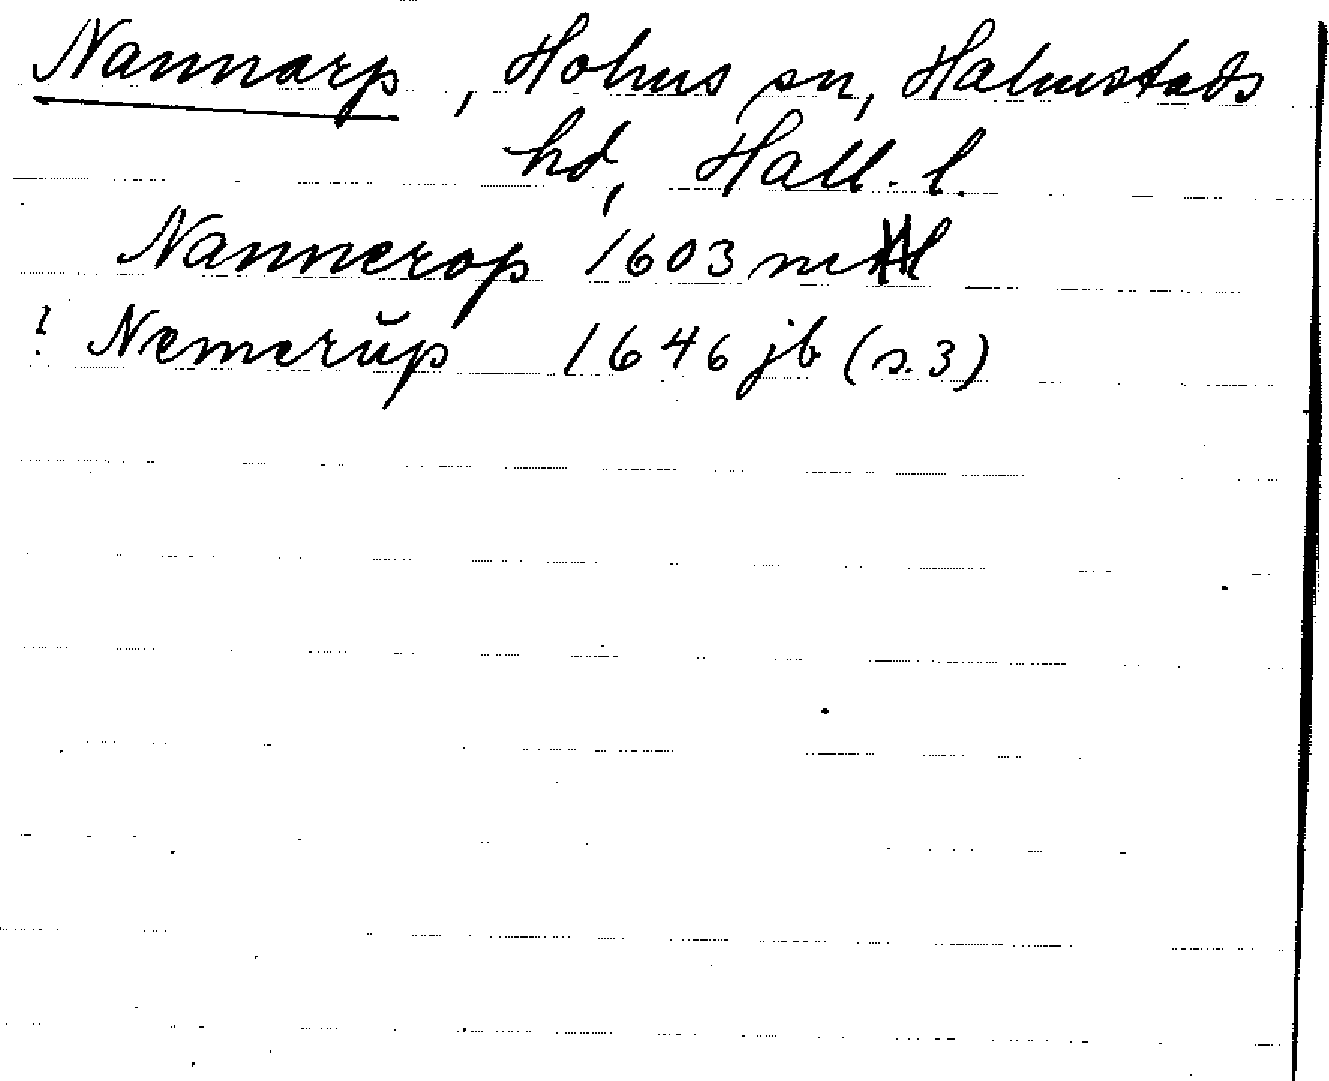 Nannarp, Holms sn, Halmstads
hd, Hall. l.
Nannerop 1603 ml
! Nemerŭp 1646 jb (s. 3)